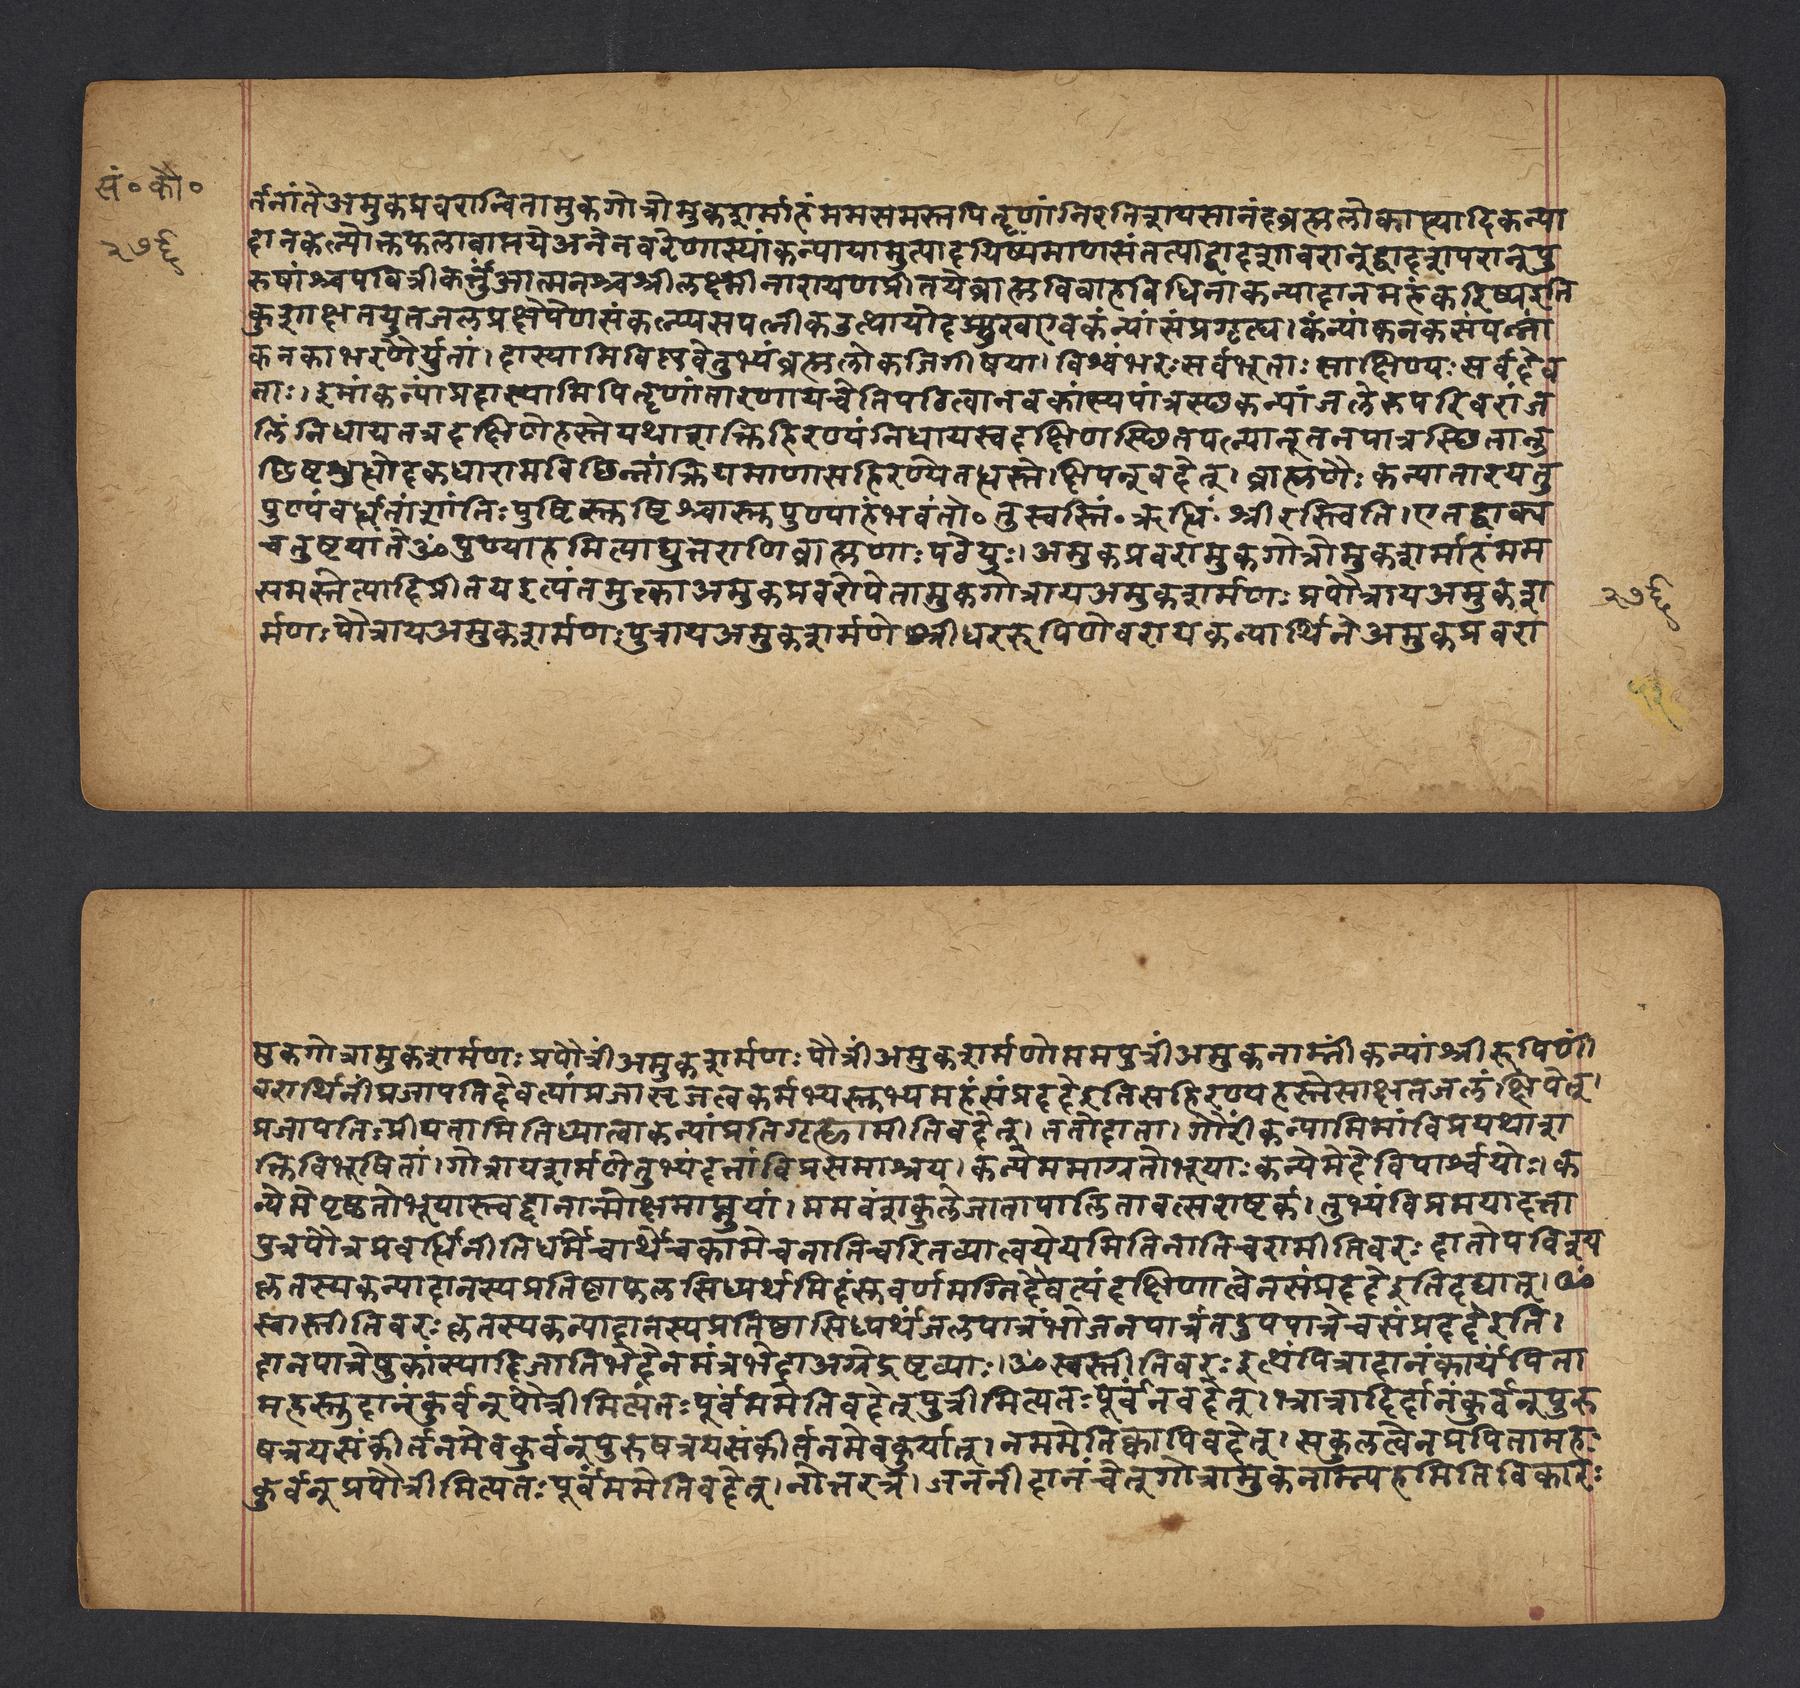 सं॰ कौ॰
२७६
र्तनांते अमुकप्रवरान्वितामुकगोत्रोमुकशर्माहं मम समस्तपितॄणां निरतिशयसानंदब्रह्मलोकाप्त्यादिकन्या
दानकल्पोक्तफलावाप्तये अनेन वरेणास्यां कन्यायामुत्पादयिष्यमाणसंतत्या द्वादशावरान् द्वादशापरान् पु
रुषांश्च पवित्रीकर्तुं आत्मनश्च श्रीलक्ष्मीनारायणप्रीतये ब्राह्मविवाहविधिना कन्यादानमहं करिष्य इति
कुशाक्षतयुतजलप्रक्षेपेण संकल्प्य सपत्नीक उत्थायोदङ्मुख एव कन्यां संप्रगृह्य। कन्यां कनकसंपन्नां
कनकाभरणैर्युतां। दास्यामि विष्णवे तुभ्यं ब्रह्मलोकजिगीषया। विश्वंभरः सर्वभूताः साक्षिण्यः सर्वदेव
ताः। इमां कन्यां प्रदास्यामि पितॄणां तारणाय चेति पठित्वा नवकांस्यपात्रस्छ कन्यांजलेरुपरि वरांज
लिं निधाय तत्र दक्षिणहस्ते यथाशक्ति हिरण्यं निधाय स्वदक्षिणस्छितपत्न्या नूतनपात्रस्छितानु
छिष्टशुद्धोदकधारामविछिन्नां क्रियमाणा सहिरण्ये तद्धस्ते क्षिपन् वदेत्। ब्राह्मणैः कन्या तारयतु
पुण्यं वर्धतां शांतिः पुष्टिस्तुष्टिश्चास्तु पुण्याहं भवंतो॰ तु स्वस्तिं॰ ऋद्धिं॰ श्रीरस्त्विति। एतद्वाक्य
चतुष्टयांते ॐ पुण्याहमित्याद्युत्तराणि ब्राह्मणाः पठेयुः। अमुकप्रवरामुकगोत्रोमुकशर्माहं मम
समस्तेत्यादि प्रीतय इत्यंतमुक्त्वा अमुकप्रवरोपेतामुकगोत्राय अमुकशर्मणः प्रपौत्राय अमुकश
र्मणः पौत्राय अमुकशर्मणः पुत्राय अमुकशर्मणे श्रीधररूपिणे वराय कन्यार्थिने अमुकप्रवरा
२७६
मुकगोत्रामुकशर्मणः प्रपौत्रीं अमुकशर्मणः पौत्रीं अमुकशर्मणो मम पुत्रीं अमुकनाम्नीं कन्यां श्रीरूपिणीं।
वरार्थिनीं प्रजापतिदेवत्यां प्रजासृजत्वकर्मभ्यस्तुभ्यमहं संप्रददे इति सहिरण्यहस्ते साक्षतजलं क्षिपेत्।
प्रजापतिः प्रीयतामिति ध्यात्वा कन्यां प्रतिगृह्णामीति वदेत्। ततो दाता। गौरीं कन्यामिमां विप्र यथाश
क्ति विभूषितां। गोत्राय शर्मणे तुभ्यं दत्तां विप्र समाश्रय। कन्ये ममाग्रतो भूयाः कन्ये मे देवि पार्श्वयोः। क
न्ये मे पृष्ठतो भूयास्त्वद्दानान्मोक्षमाप्नुयां। मम वंशकुले जाता पालिता वत्सराष्टकं। तुभ्यं विप्र मया दत्ता
पुत्रपौत्रप्रवर्धिनीति धर्मे चार्थे च कामे च नातिचरितव्या त्वयेयमिति नातिचरामीति वरः दातोपविश्य
कृतस्य कन्यादानस्य प्रतिष्ठाफलसिध्यर्थमिदं सुवर्णमग्निदैवत्यं दक्षिणात्वेन संप्रददे इति दद्यात्। ॐ
स्वस्तीति वरः कृतस्य कन्यादानस्य प्रतिष्ठासिध्यर्थं जलपात्रं भोजनपात्रं तदुपपात्रे च संप्रददे इति।
दानपात्रेषु कांस्यादिजातिभेदेन मंत्रभेदा अग्रे द्रष्टव्याः। ॐ स्वस्तीति वरः इत्थं पित्रा दानं कार्यं पिता
महस्तु दानं कुर्वन् पौत्रीमित्यतः पूर्वं ममेति वदेत् पुत्रीमित्यतः पूर्वं न वदेत्। भ्रात्रादिर्दानं कुर्वन् पुरु
षत्रयसंकीर्तनमेव कुर्वन् पुरुषत्रयसंकीर्तनमेव कुर्यात्। न ममेति क्वापि वदेत्। सकुलत्वेन प्रपितामहः
कुर्वन् प्रपौत्रीमित्यतः पूर्वं ममेति वदेत्। नोत्तरत्र। जननी दानं चेत् गोत्रामुकनाम्न्यहमिति विकारः